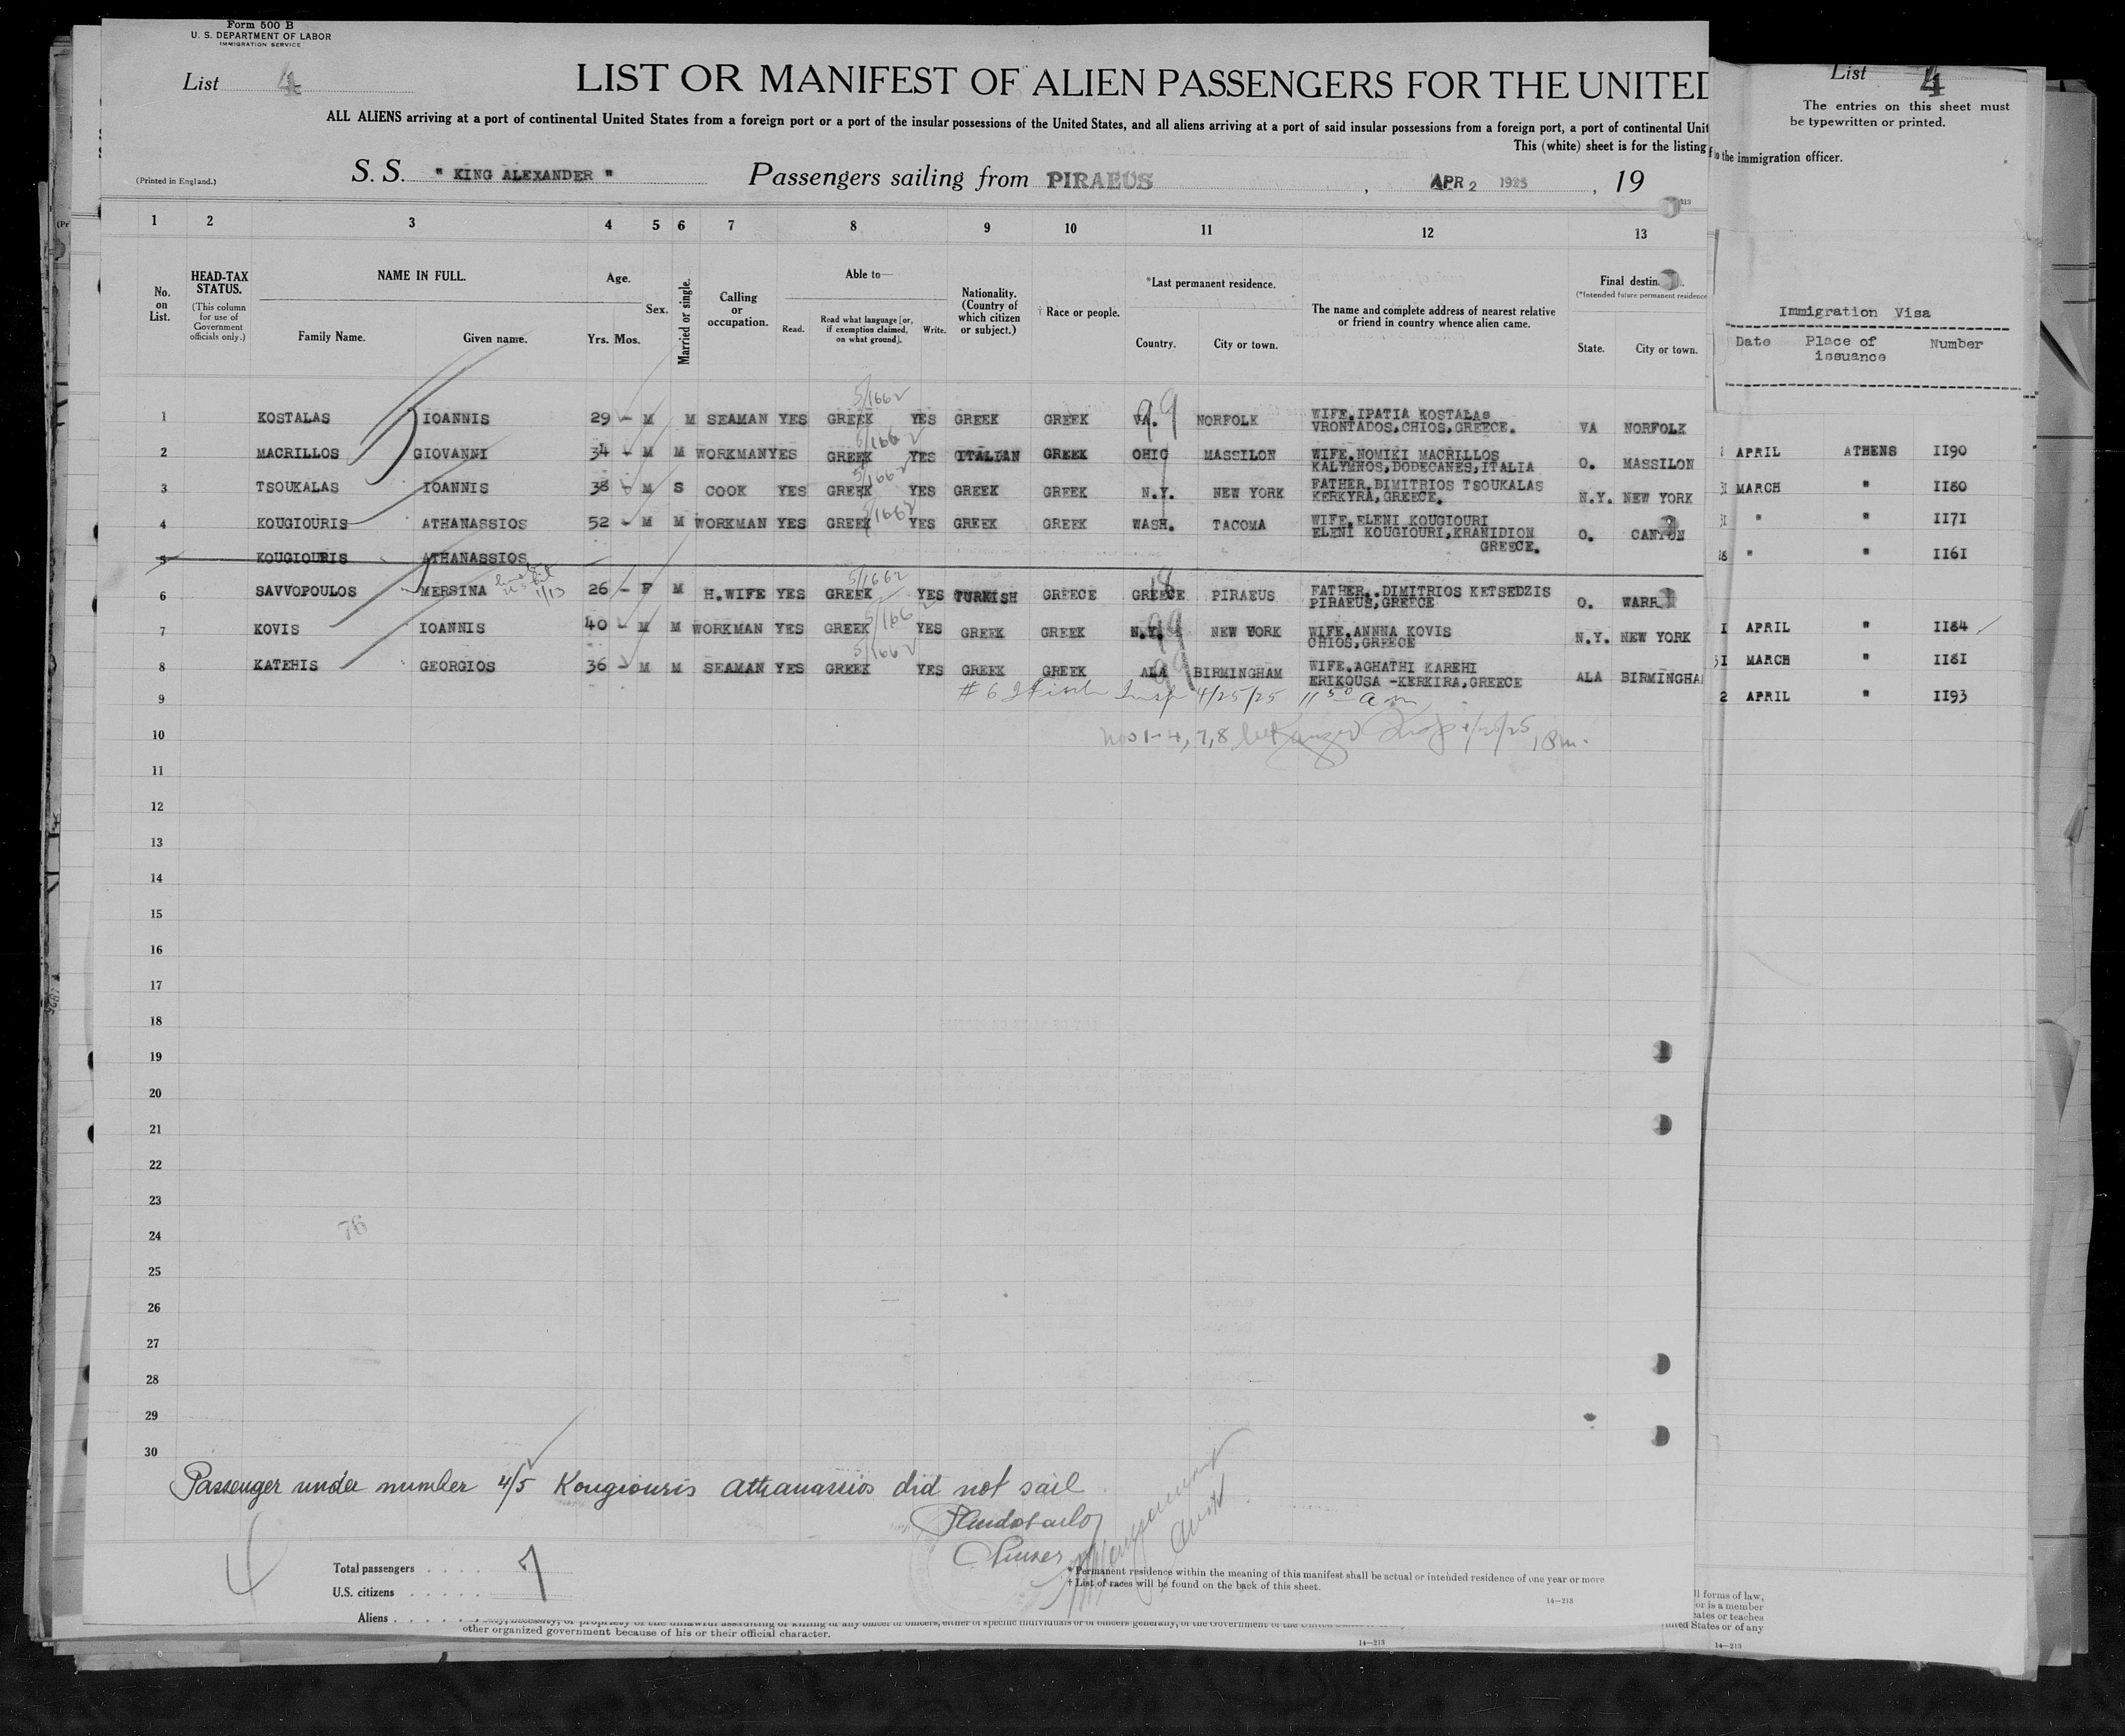 Form 500 B
U. S. DEPARTMENT OF LABOR
IMMIGRATION SERVICE
List 4
LIST OR MANIFEST OF ALIEN PASSENGERS FOR THE UNITED
ALL ALIENS arriving at a port of continental United States from a foreign port or a port of the insular possessions of the United States, and all aliens arriving at a port of said insular possessions from a foreign port, a port of continental Unit
This (white) sheet is for the listing
(Printed in England.)
S. S. " KING ALEXANDER " Passengers sailing from PIRAEUS, APR 2 1925, 19
List 4
The entries on this sheet must
be typewritten or printed.
to the immigration officer.
1 2 3 4 5 6 7 8 9 10 11 12 13
No. on List.
HEAD-TAX STATUS.
(This column for use of Government officials only.)
NAME IN FULL.
Family Name. Given name.
Age.
Yrs. Mos.
Sex.
Married or single.
Calling or occupation.
Able to—
Read. Read what language [or, if exemption claimed, on what ground]. Write.
Nationality. (Country of which citizen or subject.)
† Race or people.
*Last permanent residence.
Country. City or town.
The name and complete address of nearest relative or friend in country whence alien came.
Final destin
(*Intended future permanent residence
State. City or town.
Immigration Visa
Date Place of issuance Number
1 KOSTALAS IOANNIS 29 - M M SEAMAN YES GREEK YES GREEK GREEK VA. NORFOLK WIFE.IPATIA KOSTALAS VRONTADOS,CHIOS,GREECE. VA NORFOLK
5/1662
99
2 MACRILLOS GIOVANNI 34 - M M WORKMAN YES GREEK YES ITALIAN GREEK OHIO MASSILON WIFE.NOMIKI MACRILLOS KALYMNOS,DODECANES,ITALIA O. MASSILON
3 TSOUKALAS IOANNIS 38 - M S COOK YES GREEK YES GREEK GREEK N.Y. NEW YORK FATHER.DIMITRIOS TSOUKALAS KERKYRA,GREECE. N.Y. NEW YORK
5/1662
4 KOUGIOURIS ATHANASSIOS 52 - M M WORKMAN YES GREEK YES GREEK GREEK WASH. TACOMA WIFE.ELENI KOUGIOURI ELENI KOUGIOURI,KRANIDION GREECE. O. CANTON
5/1662
5 KOUGIOURIS ATHANASSIOS
6 SAVVOPOULOS MERSINA 26 - F M H.WIFE YES GREEK YES TURKISH GREECE GREECE PIRAEUS FATHER..DIMITRIOS KETSEDZIS PIRAEUS,GREECE O. WARR
5/1662
18
7 KOVIS IOANNIS 40 - M M WORKMAN YES GREEK YES GREEK GREEK N.Y. NEW YORK WIFE.ANNNA KOVIS CHIOS,GREECE N.Y. NEW YORK
99
8 KATEHIS GEORGIOS 36 - M M SEAMAN YES GREEK YES GREEK GREEK ALA BIRMINGHAM WIFE.AGHATHI KAREHI ERIKOUSA -KERKIRA,GREECE ALA BIRMINGHA
5/1662
99
APRIL ATHENS II90
31 MARCH " II60
31 " " II7I
" " II6I
I APRIL " II84
31 MARCH " II8I
2 APRIL " II93
9
# 6 Insp 4/25/25 11 50 am
10
nos 1-4, 7, 8
11
12
13
14
15
16
17
18
19
20
21
22
23
24
76
25
26
27
28
29
30
Passenger under number 4/5 Kougiouris Athanassios did not sail
Purser
Total passengers 7
U.S. citizens
Aliens
4
* Permanent residence within the meaning of this manifest shall be actual or intended residence of one year or more.
† List of races will be found on the back of this sheet.
14—213
other organized government because of his or their official character.
14—213
ll forms of law,
or is a member
cates or teaches
United States or of any
14—213